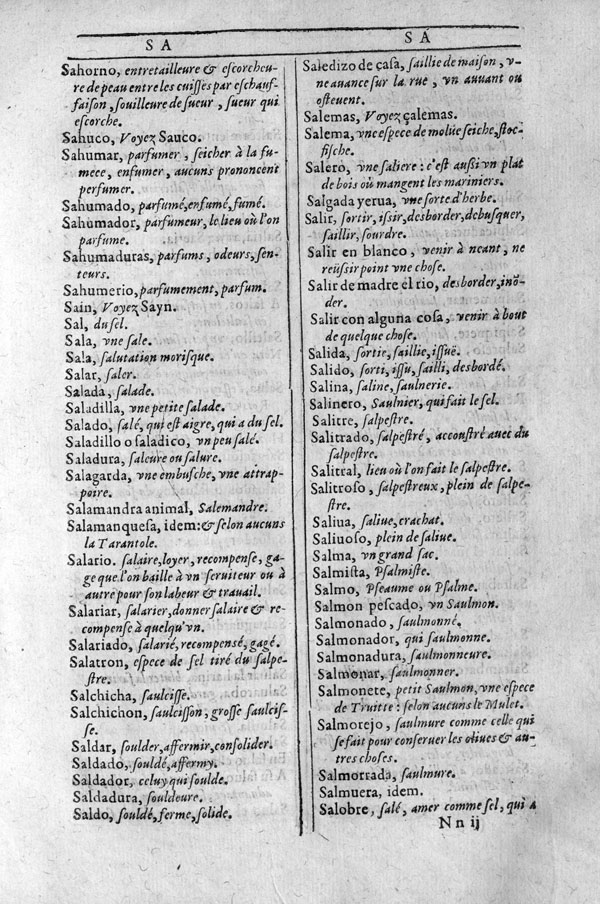 S A
Sahorno, entretailleure & eſcorcheu-
re de peau entre les cuiſſes par eſchauf-
faiſon, ſouilleure de ſueur, ſueur qui
eſcorche.
Sahuco, Voyez Sauco.
Sahumar, parfumer, ſeicher à la fu-
meee, enfumer, aucuns prononcent
perfumer.
Sahumado, parfumé, enfumé, fumé.
Sahumador, parfumeur, le lieu où l'on
parfume.
Sahumaduras, parfums, odeurs, ſen-
teurs.
Sahumerio, parfumement, parfum.
Sain, Voyez Sayn.
Sal, du ſel.
Sala, vne ſale.
Sala, ſalutation moriſque.
Salar, ſaler.
Salada, ſalade.
Saladilla, vne petite ſalade.
Salado, ſalé, qui eſt aigre, qui a du ſel.
Saladillo o ſaladico, vn peu ſalé.
Saladura, ſaleure ou ſalure.
Salagarda, vne embuſche, vne attrap-
poire.
Salamandra animal, Salemandre.
Salamanqueſa, idem: & ſelon aucuns
la Tarantole.
Salario. ſalaire, loyer, recompenſe, ga-
ge que l'on baille à vn ſeruiteur ou à
autre pour ſon labeur & trauail.
Salariar, ſalarier, donner ſalaire & re-
compenſe à quelqu'vn.
Salariado, ſalarié, recompenſé, gagé.
Salatron, eſpece de ſel tiré du ſalpe-
ſtre.
Salchicha, ſaulciſſe.
Salchichon, ſaulciſſon, groſſe ſaulciſ-
ſe.
Saldar, ſoulder, affermir, conſolider.
Saldado, ſouldé, affermy.
Saldador, celuy qui ſoulde.
Saldadura, ſouldeure.
Saldo, ſouldé, ferme, ſolide.
S A
Saledizo de caſa, ſaillie de maiſon, v-
ne auance ſur la rue, vn auuant ou
oſteuent.
Salemas, Voyez çalemas.
Salema, vne eſpece de moluë ſeiche, ſtoc-
fiſche.
Salero, vne ſaliere: c'eſt auſsi vn plat
de bois où mangent les mariniers.
Salgada yerua, vne ſorte d'herbe.
Salir, ſortir, iſsir, desborder, debuſquer,
ſaillir, ſourdre.
Salir en blanco, venir à neant, ne
reüſsir point vne choſe.
Salir de madre el rio, desborder, inõ-
der.
Salir con alguna coſa, venir à bout
de quelque choſe.
Salida, ſortie, ſaillie, iſſuë.
Salido, ſorti, iſſu, ſailli, desbordé.
Salina, ſaline, ſaulnerie.
Salinero, Saulnier, qui fait le ſel.
Salitre, ſalpeſtre.
Salitrado, ſalpeſtré, accouſtré auec du
ſalpeſtre.
Salitral, lieu où l'on fait le ſalpeſtre.
Salitroſo, ſalpeſtreux, plein de ſalpe-
ſtre.
Saliua, ſaliue, crachat.
Saliuoſo, plein de ſaliue.
Salma, vn grand ſac.
Salmiſta, Pſalmiſte.
Salmo, Pſeaume ou Pſalme.
Salmon peſcado, vn Saulmon.
Salmonado, ſaulmonné.
Salmonador, qui ſaulmonne.
Salmonadura, ſaulmonneure.
Salmonar, ſaulmonner.
Salmonete, petit Saulmon, vne eſpece
de Truitte: ſelon aucuns le Mulet.
Salmorejo, ſaulmure comme celle qui
ſe fait pour conſeruer les oliues & au-
tres choſes.
Salmorrada, ſaulmure.
Salmuera, idem.
Salobre, ſalé, amer comme ſel, qui a
N n ij